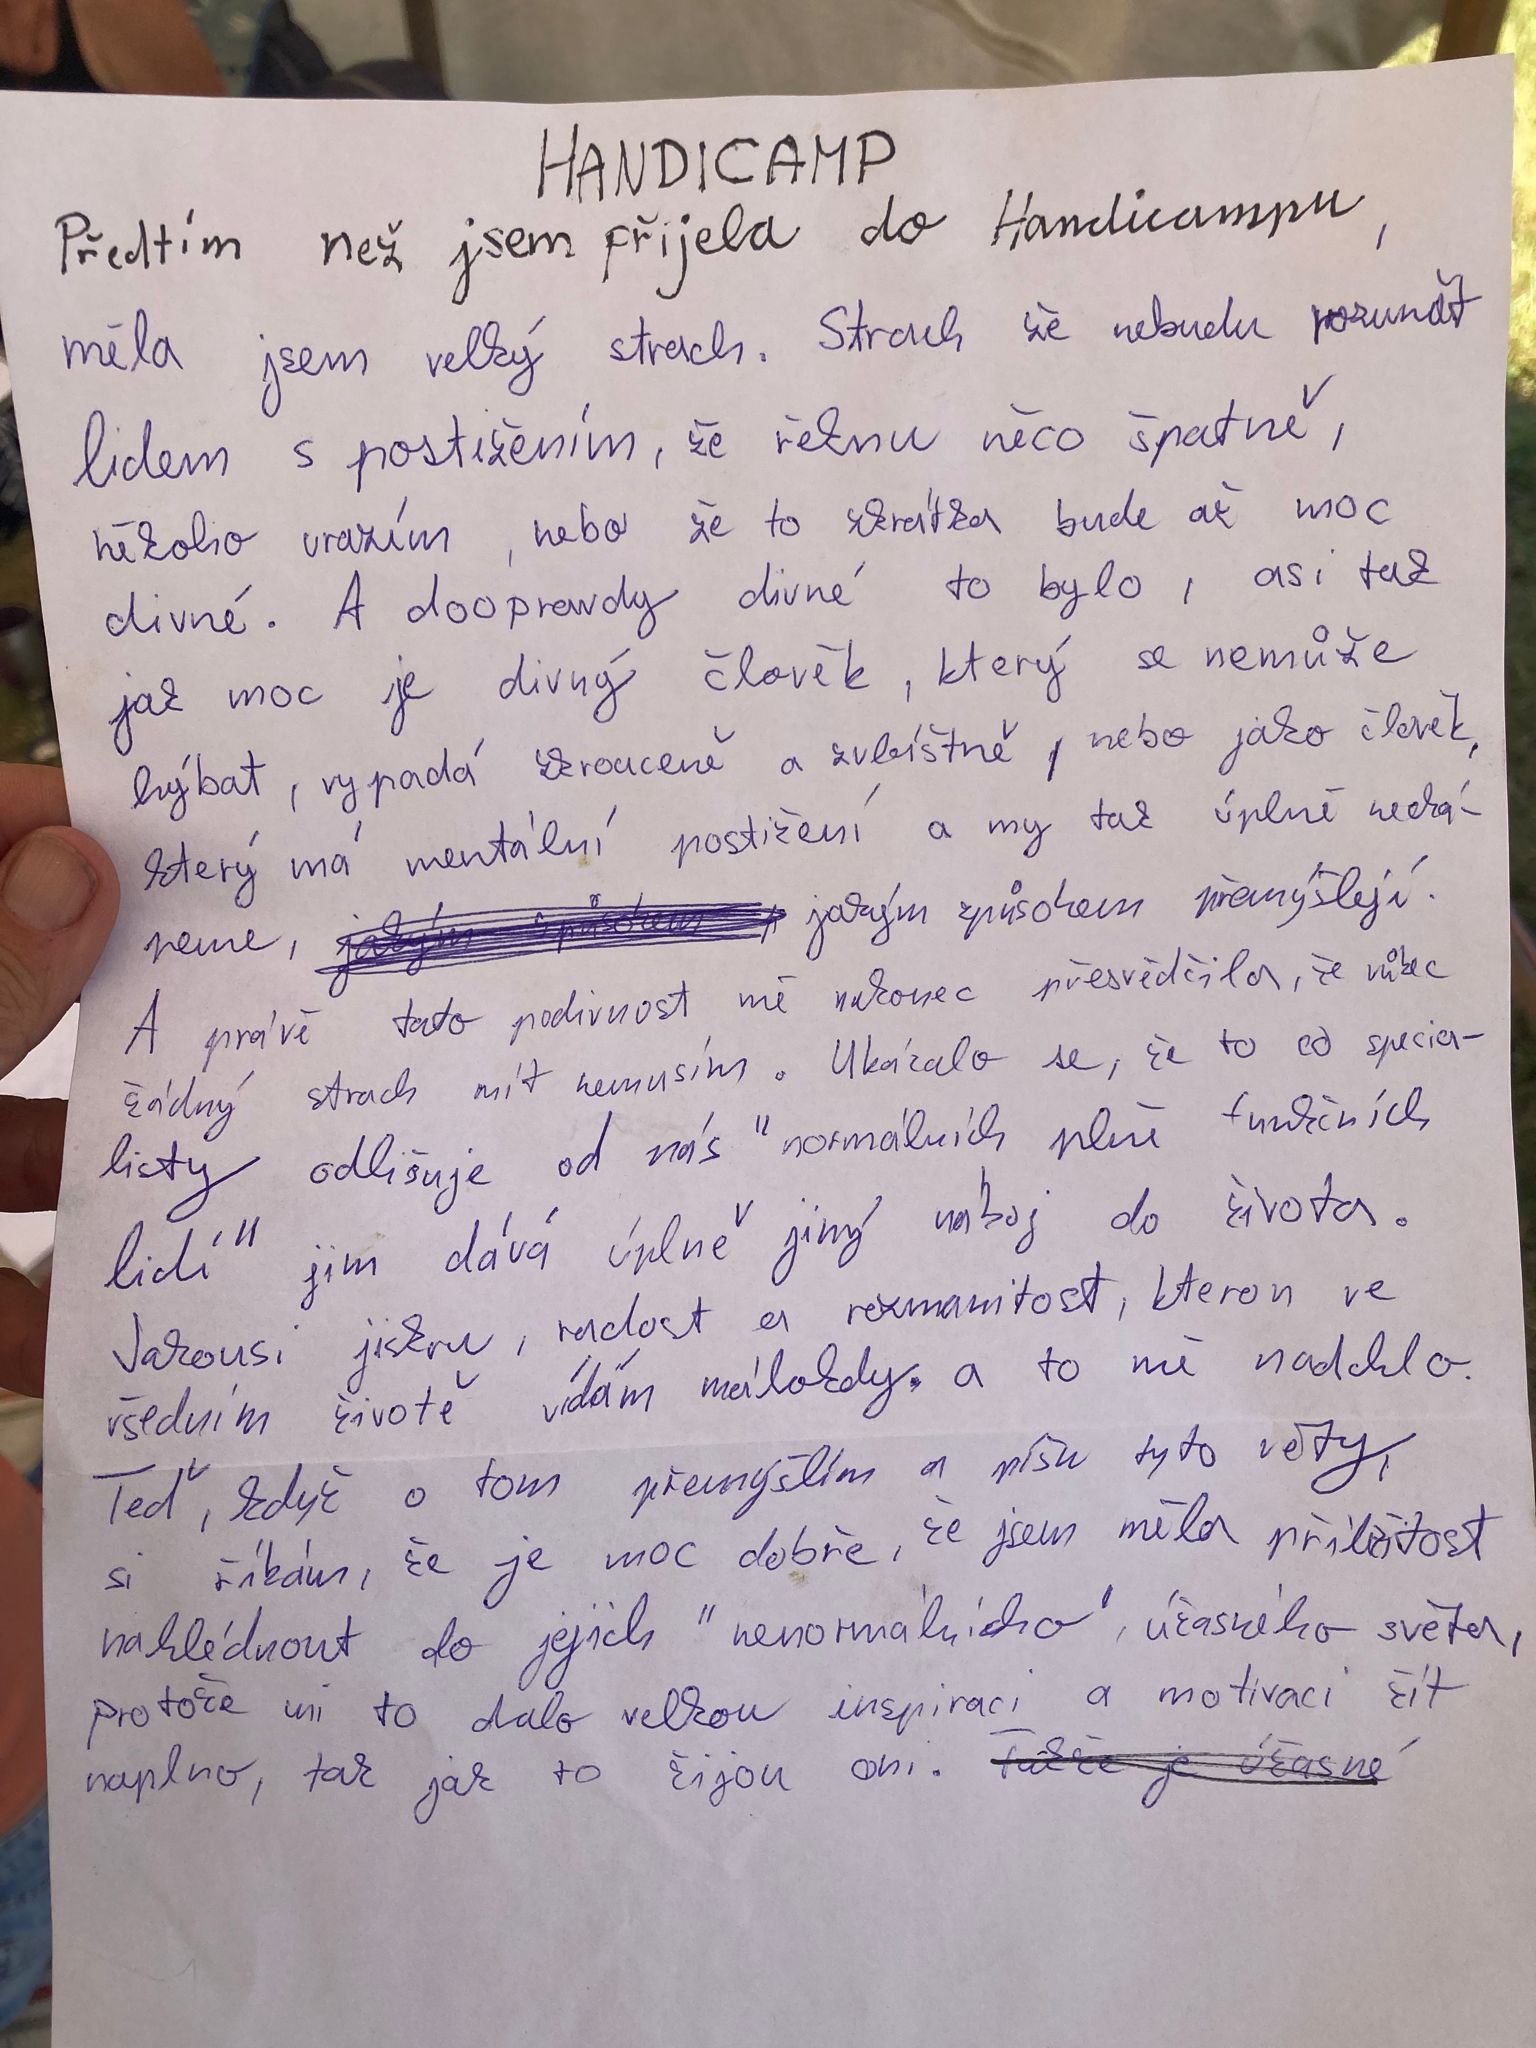 HANDICAMP
Předtím než jsem přijela do Handicampu,
měla jsem velký strach. Strach že nebudu rozumět
lidem s postižením, že řeknu něco špatně,
někoho urazím, nebo že to zkrátka bude až moc
divné. A doopravdy divné to bylo, asi tak
jak moc je divný člověk, který se nemůže
hýbat, vypadá zkrouceně a zvláštně, nebo jako člověk,
který má mentální postižení a my tak úplně nechá-
peme, jakým způsobem, jakým způsobem přemýšlejí.
A právě tato podivnost mě nakonec přesvědčila, že vůbec
žádný strach mít nemusím. Ukázalo se, že to co specia-
listy odlišuje od nás "normálních plně funkčních
lidí" jim dává úplně jiný náboj do života.
Jakousi jiskru, radost a rozmanitost, kterou ve
všedním životě vídám málokdy. a to mě nadchlo.
Teď, když o tom přemýšlím a píšu tyto věty,
si říkám, že je moc dobře, že jsem měla příležitost
nahlédnout do jejich "nenormálního", úžasného světa,
protože mi to dalo velkou inspiraci a motivaci žít
naplno, tak jak to žijou oni. Takže je úžasné